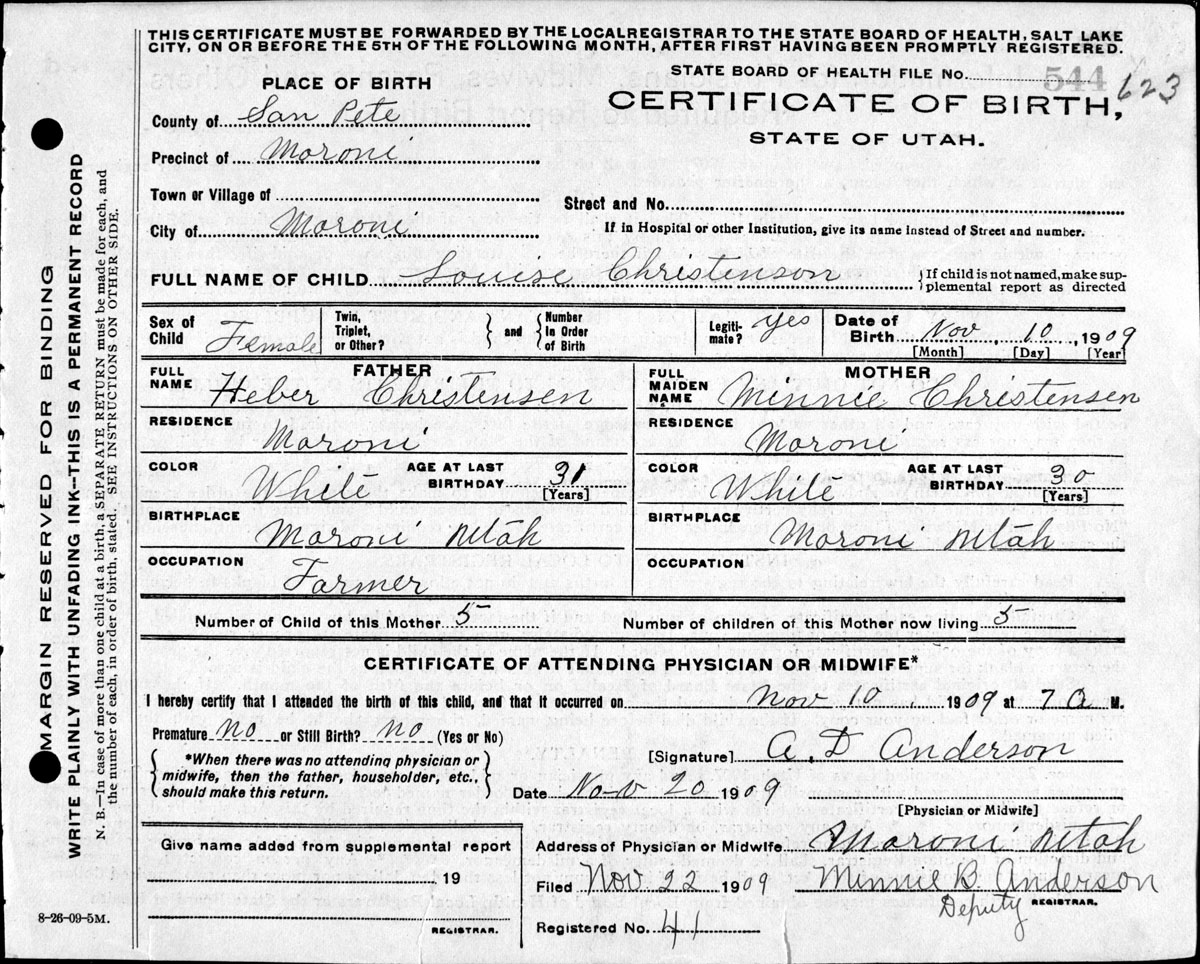 THIS CERTIFICATE MUST BE FORWARDED BY THE LOCAL REGISTRAR TO THE STATE BOARD OF HEALTH, SALT LAKE
CITY, ON OR BEFORE THE 5TH OF THE FOLLOWING MONTH, AFTER FIRST HAVING BEEN PROMPTLY REGISTERED.
STATE BOARD OF HEALTH FILE No. 544 623
CERTIFICATE OF BIRTH,
STATE OF UTAH.
PLACE OF BIRTH
County of San Pete
Precinct of Moroni
Town or Village of
Street and No.
City of Moroni
If in Hospital or other Institution, give its name instead of Street and number.
FULL NAME OF CHILD Louise Christenson
{If child is not named, make sup-
plemental report as directed
Sex of Child Female
Twin, Triplet, or Other? } and { Number In Order of Birth
Legiti-mate? Yes
Date of Birth Nov, 10, 1909
[Month] [Day] [Year]
FATHER
FULL NAME Heber Christensen
RESIDENCE Moroni
COLOR White AGE AT LAST BIRTHDAY 31 [Years]
BIRTHPLACE Moroni Utah
OCCUPATION Farmer
MOTHER
FULL MAIDEN NAME Minnie Christensen
RESIDENCE Moroni
COLOR White AGE AT LAST BIRTHDAY 30 [Years]
BIRTHPLACE Moroni Utah
OCCUPATION
Number of Child of this Mother 5 Number of children of this Mother now living 5
CERTIFICATE OF ATTENDING PHYSICIAN OR MIDWIFE*
I hereby certify that I attended the birth of this child, and that it occurred on Nov 10, 1909 at 7 A M.
Premature No or Still Birth? No (Yes or No)
{ *When there was no attending physician or
midwife, then the father, householder, etc.,
should make this return. }
[Signature] A. D Anderson
Date Nov 20 1909
[Physician or Midwife]
Give name added from supplemental report
, 19
REGISTRAR.
Address of Physician or Midwife Moroni Utah
Filed Nov 22 1909 Minnie B. Anderson
Deputy REGISTRAR.
Registered No. 41
8-26-09-5M.
MARGIN RESERVED FOR BINDING
WRITE PLAINLY WITH UNFADING INK--THIS IS A PERMANENT RECORD
N. B.—In case of more than one child at a birth, a SEPARATE RETURN must be made for each, and
the number of each, in order of birth, stated. SEE INSTRUCTIONS ON OTHER SIDE.